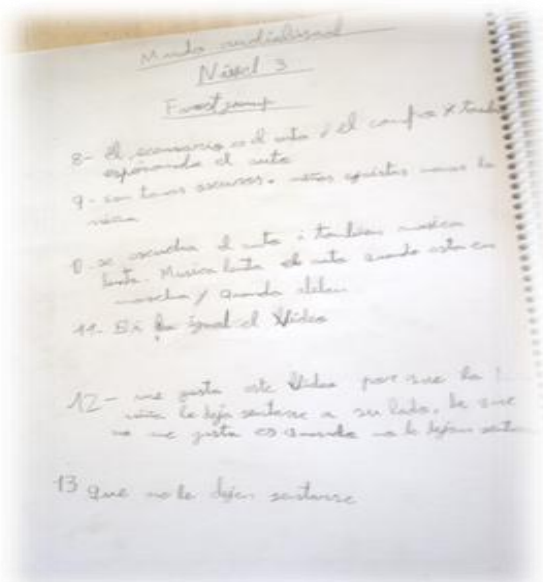 Mundo audiovisual
Nivel 3
Forest gump
8- El escenario es el auto y el campo y tambien
esperando el auto
9- son tonos oscuros. menos la
niña
0- se escucha el auto i tambien musica
lenta. Musica lenta el auto cuando esta en
marcha y quando
11- Si igual el Video
12- me gusta este Video porque la
niña le deja sentarse a su lado. Lo que
no me gusta es quando no le dejan
13 que no le dejen sentarse